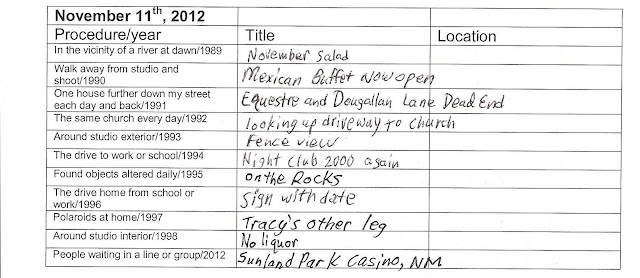 November 11th, 2012
Procedure/year Title Location
In the vicinity of a river at dawn/1989 November Salad
Walk away from studio and
shoot/1990 Mexican Buffet Now open
One house further down my street
each day and back/1991 Equestre and Dougallan Lane Dead End
The same church every day/1992 looking up driveway to church
Around studio exterior/1993 Fence view
The drive to work or school/1994 Night Club 2000 again
Found objects altered daily/1995 on the Rocks
The drive home from school or
work/1996 Sign with date
Polaroids at home/1997 Tracy's other leg
Around studio interior/1998 No liquor
People waiting in a line or group/2012 Sunland Park Casino, NM